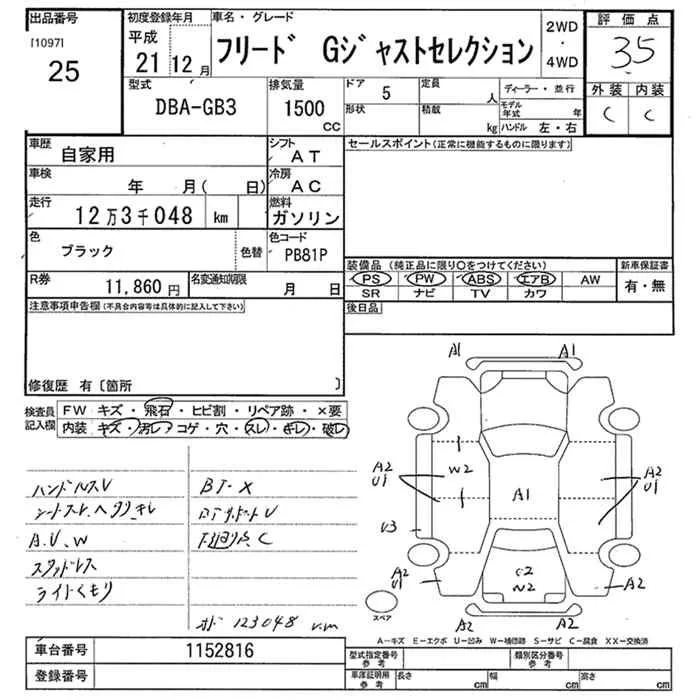 出品番号
[1097]
25
初度登録年月
平成
21 12月
車名・グレード
フリード Gジャストセレクション
2WD
・
4WD
評価点
3.5
外装 内装
C C
型式
DBA-GB3
排気量
1500
CC
ドア
5
定員
人
形状
積載
kg
ディーラー・並行
モデル年式
年
ハンドル 左・右
車歴
自家用
シフト
AT
車検
年 月( 日)
冷房
AC
走行
12万3千048 km
燃料
ガソリン
色
ブラック
色替
色コード
PB81P
R券
11,860 円
名変通知期限
月 日
セールスポイント(正常に機能するものに限ります)
装備品(純正品に限り○をつけてください)
PS PW ABS エアB AW
SR ナビ TV カワ
新車保証書
有・無
注意事項申告欄(不具合内容等は具体的に記入して下さい)
後日品
修復歴 有〔箇所 〕
検査員
記入欄
FW キズ・飛石・ヒビ割・リペア跡・×要
内装 キズ・汚レ・コゲ・穴・スレ・キレ・破レ
ハンドルスレ
シートスレ、ヘタリ キレ
A.U.W
スタッドレス
ライトくもり
BT-X
下回り点、C
123048 km
A1 A1
A2
U1
W2
A1
A2
U1
U3
C2
W2
A2
U1
A2
A2 A2
スペア
A-キズ E-エクボ U-凹み W-補修跡 S-サビ C-腐食 XX-交換済
車台番号
1152816
登録番号
型式指定番号
参考
類別区分番号
参考
車庫証明用
参考
長さ
cm
幅
cm
高さ
cm